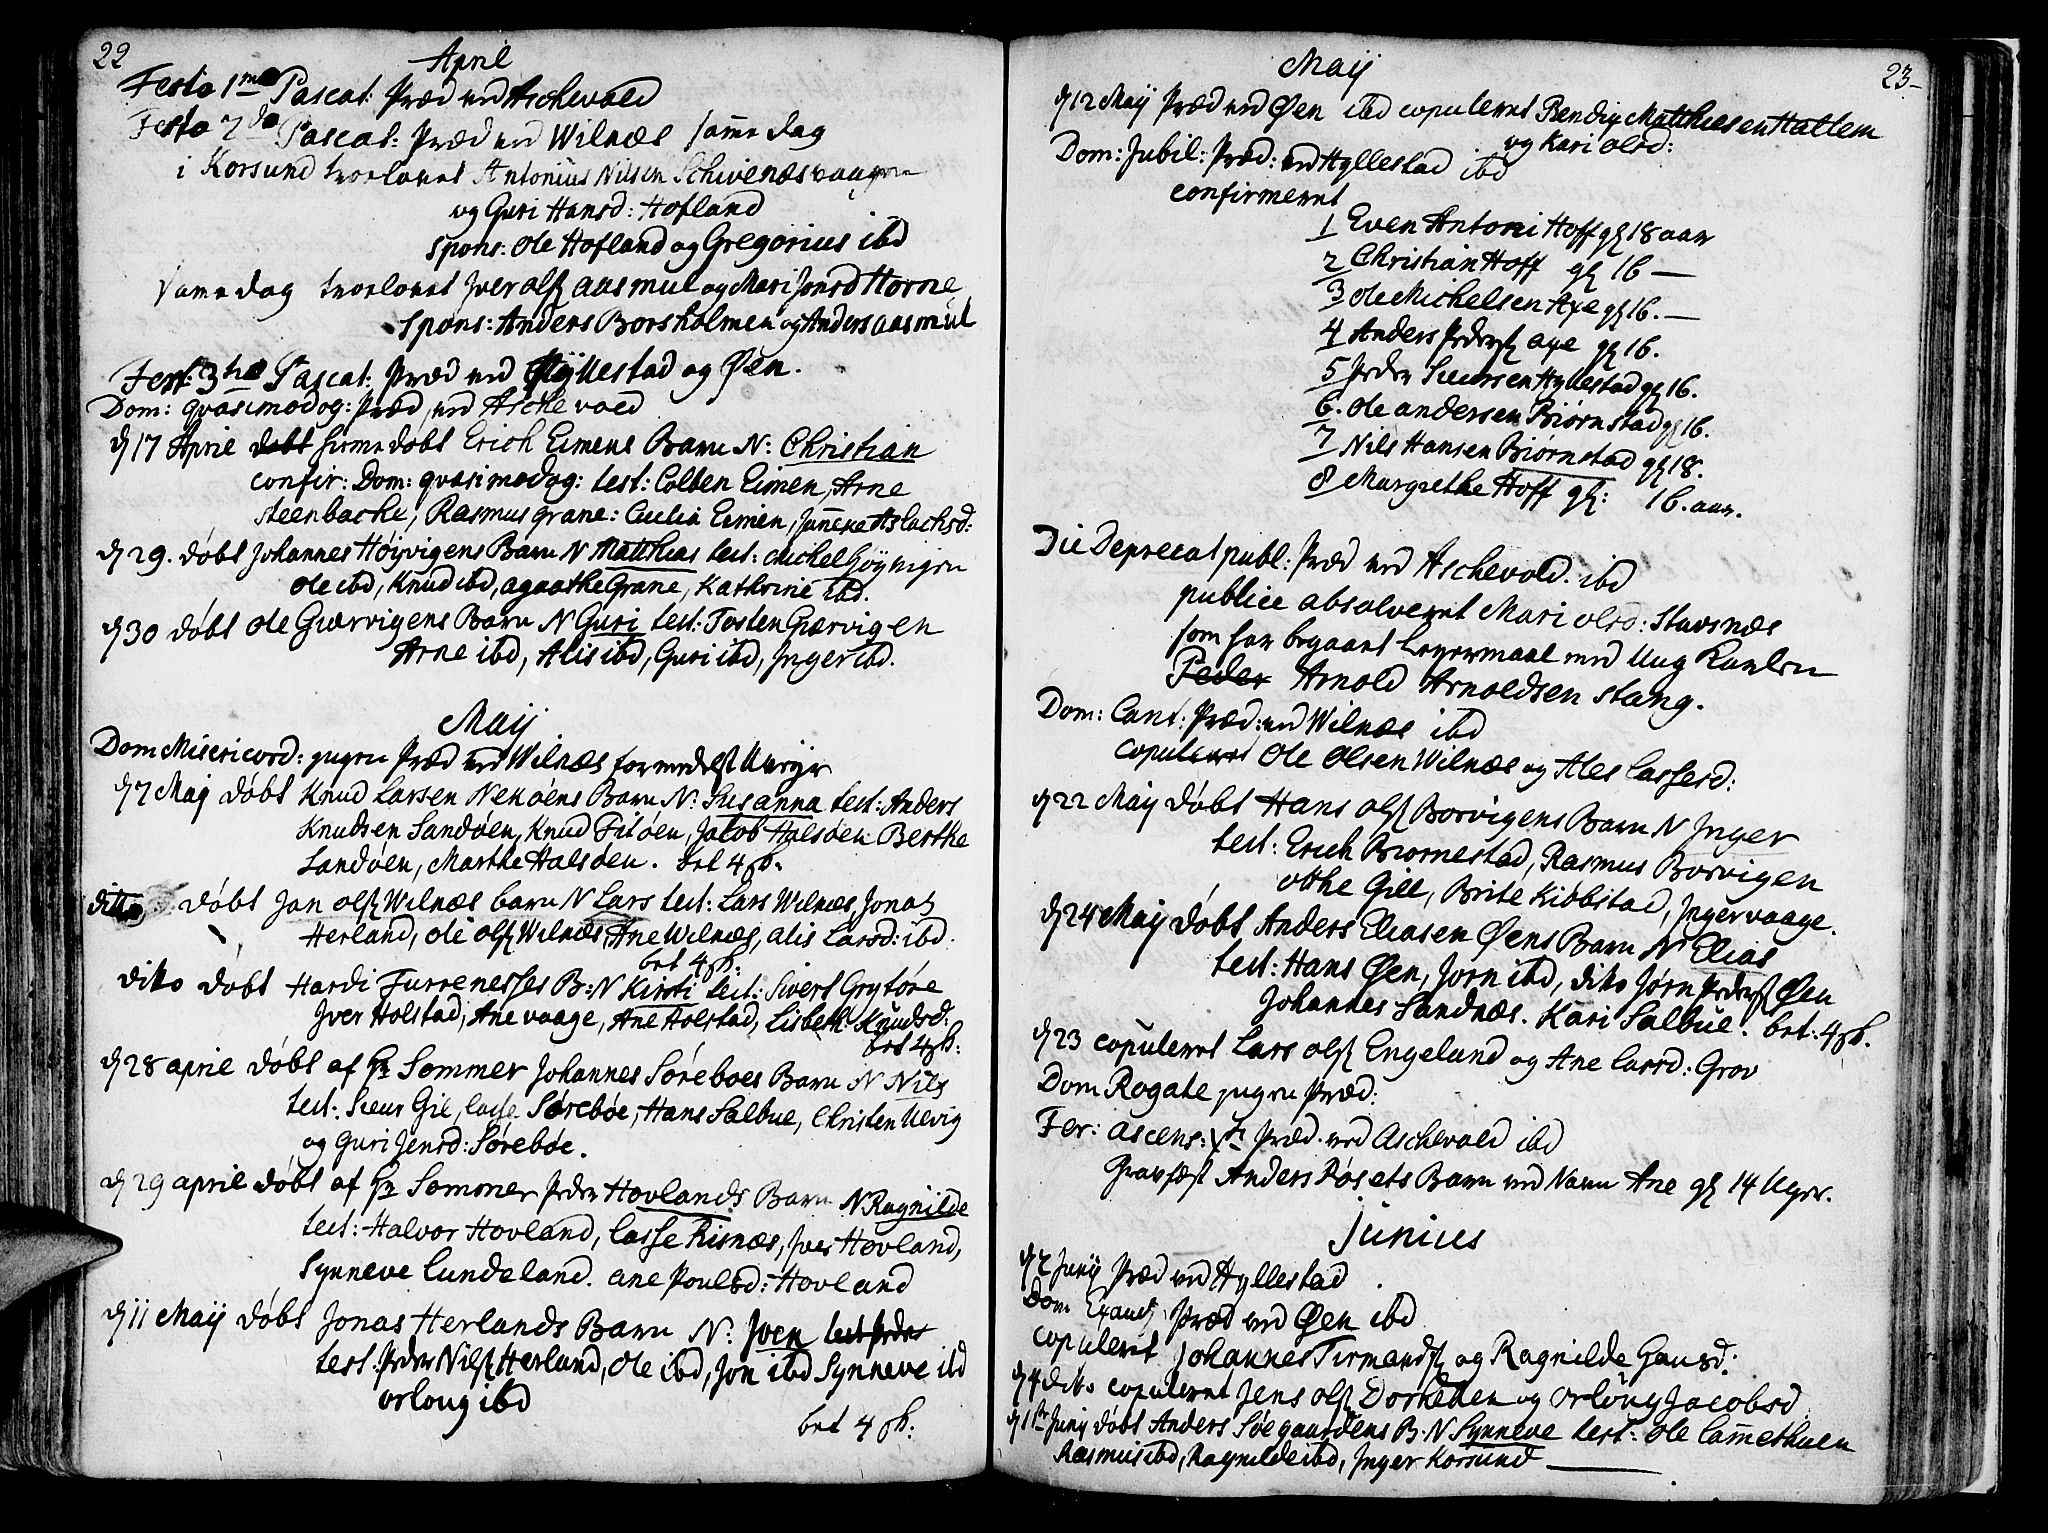 22
April
Festo 1ma Pascat: Præd ved Aschevold
Festo 2da Pascat: Præd ved Wilnæs samme dag
i Korsund trolovet Antonius Nilsen Schivenæsvaagen
og Guri Hansd: Hofland
spons: Ole Hofland og Gregorius ibd
Samme dag trolovet Iver Ols: Aasmul og Mari Jonsd Horne
spons: Anders Borsholmen og Anders Aasmul
Fest: 3tia Pascat: Præd ved Hyllestad og Øen.
Dom: qvasimodog: Præd ved Aschevold
d 17 April dobt hiemedøbt Erich Eimens Barn N: Christian
confir: Dom: qvasimodog: test: Colben Eimen, Arne
Steenbache, Rasmus Grane: Cicilia Eimen, Janneke Aslachsd:
d 29. døbt Johannes Høyvigens Barn N Matthias test: Michel Høyvigen
Ole ibd, Knud ibd, Agaathe Grane, Kathrine ibd.
d 30 døbt Ole Giærvigens Barn N Guri test: Tosten Giærvigen
Arne ibd, Alis ibd, Guri ibd, Inger ibd.
Maij
Dom Misericord: ingen Præd ved Wilnæs formedelst Uveyr
d 7 Maij døbt Knud Larsen Nekøens Barn N: Susanna test: Anders
Knudsen Sandøen, Knud Fitøen, Jacob Halsøen Berthe
Sandøen, Marthe Halsøen. bet 4 sk:
ditto døbt Jan Ols: Wilnæs barn N Lars test: Lars Wilnæs, Jonas
Herland, Ole Ols: Wilnæs, Ane Wilnæs, Alis Larsd: ibd.
bet 4 sk:
dito døbt Hardi Furrenesses B: N Kirsti test: Sivert Grytøre
Iver Holstad, Ane Vaage, Ane Holstad, Lisbeth Knudsd:
bet 4 sk:
d 28 april døbt af Hr Sommer Johannes Sørebøes Barn N Nils
test: Siur Gil, Lasse Sørebøe, Hans Salbue, Christen Ulvig
og Guri Jensd: Sørebøe.
d 29 april døbt af Hr Sommer Peder Hovlands Barn N Ragnilde
test: Halvor Hovland, Lasse Risnæs, Iver Hovland,
Synneve Lundeland. Ane Poulsd: Hovland
d 11 Maij døbt Jonas Herlands Barn N: Iven test Peder
test: Peder Nils: Herland, Ole ibd, Jon ibd Synneve ibd
Orloug ibd
bet 4 sk:
Maij
23
d 12 Maij Præd ved Øen ibd copuleret Bendix Matthiesen Hattem
og Kari Olsd:
Dom: Jubil: Præd: ved Hyllestad ibd
confirmeret
1 Even Antoni Hoff gl 18 aar
2 Christian Hoff gl 16 —
3 Ole Michelsen Axe gl 16. —
4 Anders Peders: Axe gl 16.
5 Peder Siursen Hyllestad gl 16.
6. Ole Andersen Biørnstad gl 16.
7 Nils Hansen Biørnstad gl 18.
8 Margrethe Hoff gl: 16. aar.
Die Deprecat publ: Præd ved Aschevold. ibd
publice absolveret Mari Olsd: Stavsnæs
som har begaaet Leyermaal med Ung Karlen
Peder Arnold Arnoldsen Stang.
Dom: Cant: Præd: ved Wilnæs ibd
copuleret Ole Olsen Wilnæs og Ales Lassesd:
d 22 Maij døbt Hans Ols: Borvigens Barn N Inger
test: Erich Biørnestad, Rasmus Borvigen
Otthe Gill, Brite Kiøbstad, Inger Vaage.
d 24 Maij døbt Anders Eliasen Øens Barn N Elias
test: Hans Øen, Jørn ibd, dito Jørn Peders: Øen
Johannes Sandnæs. Kari Salbue. bet: 4 sk.
d 23 copuleret Lars Ols: Engeland og Ane Larsd: Grov
Dom Rogate ingen Præd:
Fer: ascens: Præd. ved Aschevold ibd
Gravfæst Anders Røsets Barn ved Navn Ane gl 14 Uger.
Junius
d 2 Junij Præd ved Hyllestad
Dom Exaudi, Præd ved Øen ibd
copuleret Johannes Tormands: og Ragnilde Gausd:
d 4 dito copuleret Jens Ols: Dorheden og Orloug Jacobsd
d 1ste Junij døbt Anders Søegaardens B. N Synneve test: Ole Lammethuen
Rasmus ibd, Ragnilde ibd, Inger Korsund